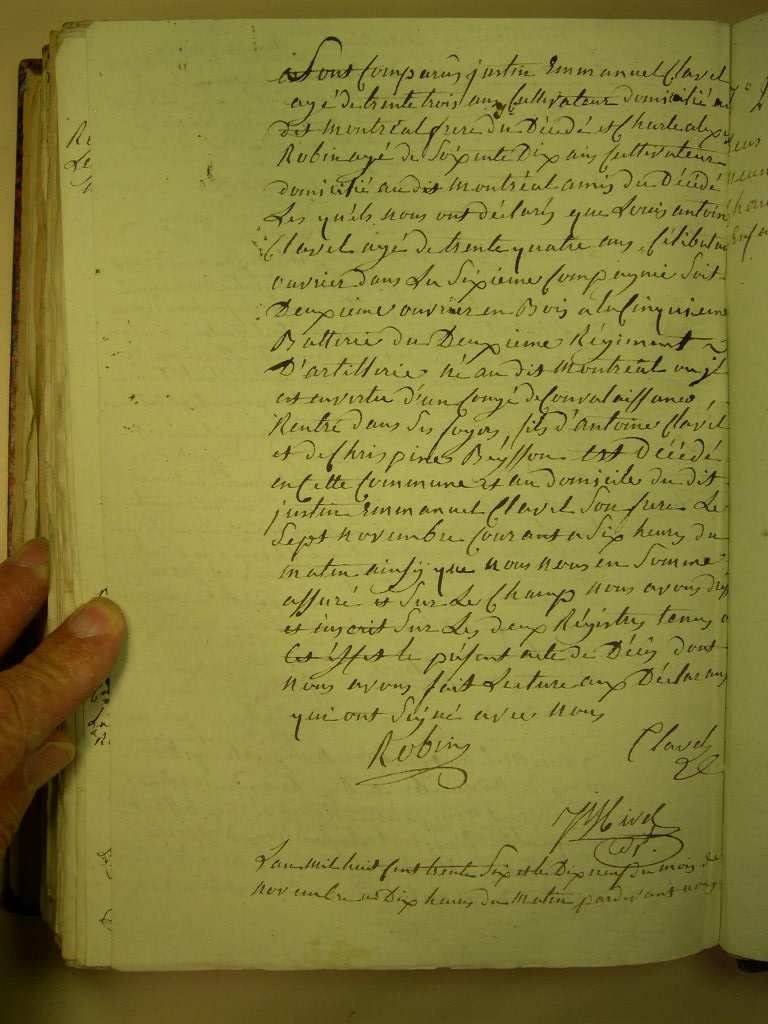 Sont Comparûs justin Emmanuel Clavel
agé de trente trois ans Cultivateur domicilié au
dit Montréal frere du Décédé et Charle
Robin agé de Soixente Dix ans Cultivateur
domicilié au dit Montréal amis du Décédé
Les quels nous ont déclarés que Louis antoine
Clavel agé de trente quatre ans, Célibatai
ouvrier dans La Sixieme Compagnie Soit
Deuxieme ouvrier en Bois a la Cinquieme
Batterie du Deuxieme Régiment
D'artillerie Né au dit Montréal ou jl
est en vertu d'un Congé de Convalaissance,
Rentré dans Ses foyers, fils d'antoine Clavél
et de Chrispine Béysson est Décédé
en Cette Commune et au domicile du dit
justin Emmanuel Clavel Son frere Le
Sept Novembre Courant a Six heures du
matin ainsÿ que Nous Nous en Somme
assuré et Sur Le Champ Nous avons
et inscrit Sur Les deux Régistres tenus a
Cet éffet le présent acte de Décès dont
Nous avons fait Lecture aux Déclarans
qui ont Signé avec Nous
Robin Clavel
L'an Mil huit Cent trente Six et le Dix neuf du mois de
Novembre a Dix heures du Matin pardevant nous